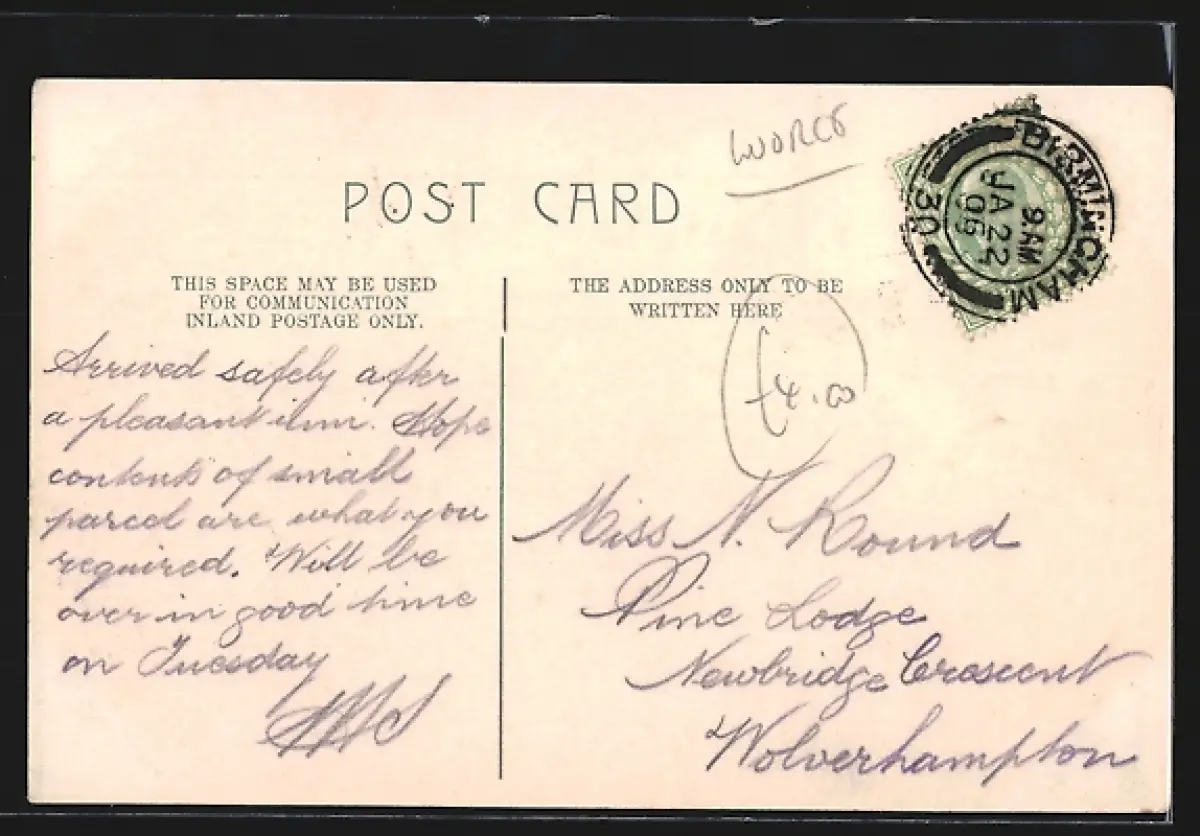 WORCS
POST CARD
BIRMINGHAM
9. AM
JA 22
06
30
THIS SPACE MAY BE USED
FOR COMMUNICATION
INLAND POSTAGE ONLY.
THE ADDRESS ONLY TO BE
WRITTEN HERE
£4.00
Arrived safely after
a pleasant Hope
contents of small
parcel are what you
required. Will be
over in good time
on Tuesday
Miss N. Round
Pine Lodge
Newbridge Crescent
Wolverhampton